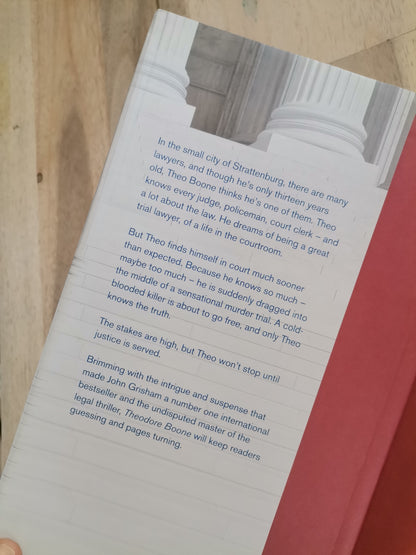 In the small city of Strattenburg, there are many
lawyers, and though he's only thirteen years
old, Theo Boone thinks he's one of them. Theo
knows every judge, policeman, court clerk – and
a lot about the law. He dreams of being a great
trial lawyer, of a life in the courtroom.
But Theo finds himself in court much sooner
than expected. Because he knows so much –
maybe too much – he is suddenly dragged into
the middle of a sensational murder trial. A cold-
blooded killer is about to go free, and only Theo
knows the truth.
The stakes are high, but Theo won't stop until
justice is served.
Brimming with the intrigue and suspense that
made John Grisham a number one international
bestseller and the undisputed master of the
legal thriller, Theodore Boone will keep readers
guessing and pages turning.